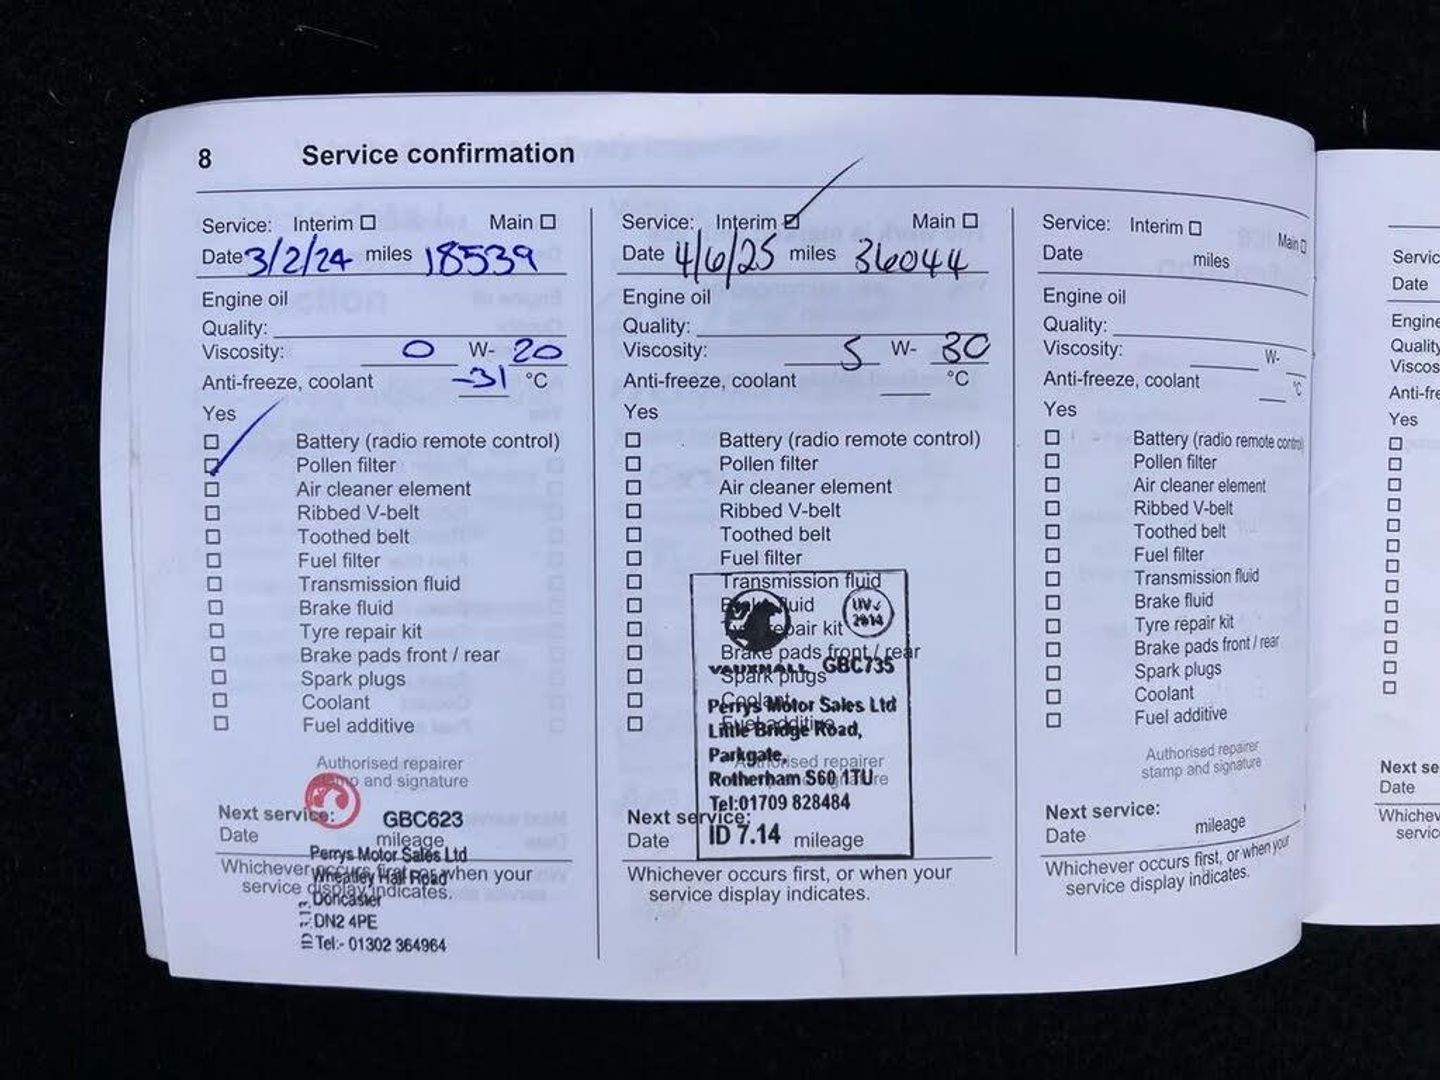 8 Service confirmation
Service: Interim Main
Date 3/2/24 miles 18539
Engine oil
Quality:
Viscosity: 0 W- 20
Anti-freeze, coolant -31 °C
Yes
Battery (radio remote control)
Pollen filter
Air cleaner element
Ribbed V-belt
Toothed belt
Fuel filter
Transmission fluid
Brake fluid
Tyre repair kit
Brake pads front / rear
Spark plugs
Coolant
Fuel additive
Authorised repairer
stamp and signature
Next service:
GBC623
Date mileage
Perrys Motor Sales Ltd
Whichever occurs first, or when your
Wheatley Hall Road
service display indicates.
Doncaster
DN2 4PE
Tel:- 01302 364964
Service: Interim Main
Date 4/6/25 miles 36044
Engine oil
Quality:
Viscosity: 5 W- 30
Anti-freeze, coolant °C
Yes
Battery (radio remote control)
Pollen filter
Air cleaner element
Ribbed V-belt
Toothed belt
Fuel filter
Transmission fluid
Brake fluid
Tyre repair kit
Brake pads front / rear
Spark plugs
Coolant
Fuel additive
2014
VAUXHALL GBC735
Perrys Motor Sales Ltd
Little Bridge Road,
Parkgate,
Authorised repairer
Rotherham S60 1TU
stamp and signature
Tel:01709 828484
Next service:
ID 7.14
Date mileage
Whichever occurs first, or when your
service display indicates.
Service: Interim Main
Date miles
Engine oil
Quality:
Viscosity: W-
Anti-freeze, coolant °C
Yes
Battery (radio remote control)
Pollen filter
Air cleaner element
Ribbed V-belt
Toothed belt
Fuel filter
Transmission fluid
Brake fluid
Tyre repair kit
Brake pads front / rear
Spark plugs
Coolant
Fuel additive
Authorised repairer
stamp and signature
Next service:
Date mileage
Whichever occurs first, or when your
service display indicates.
Servic
Date
Engine
Quality
Viscos
Anti-fre
Yes
Next se
Date
Whichev
servic